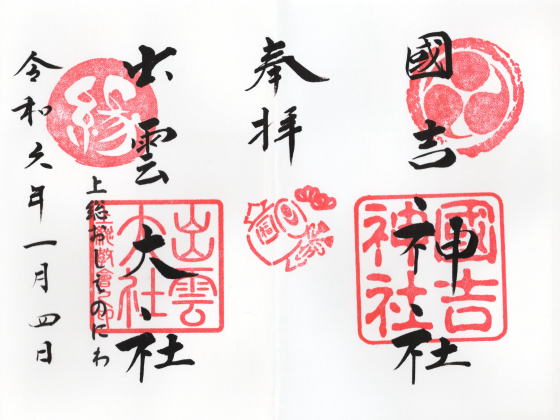 國吉神社
國吉神社
奉拝
福
出雲大社
出雲大社
縁
上総おしとのにわ
令和六年一月四日